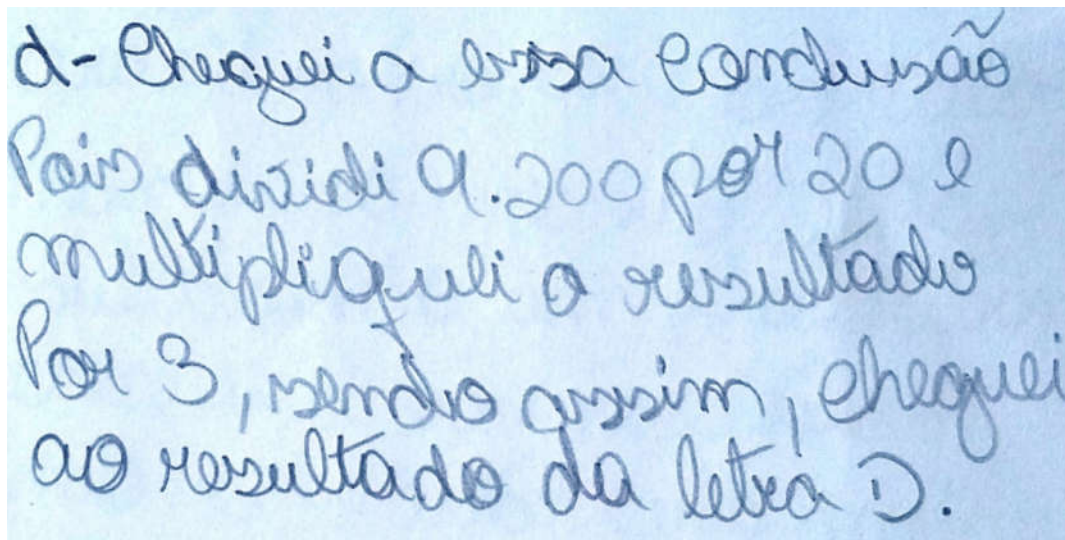 d- Cheguei a essa conclusão
Pois dividi 9.200 por 20 e
multipliquei o resultado
Por 3, sendo assim, cheguei
ao resultado da letra D.